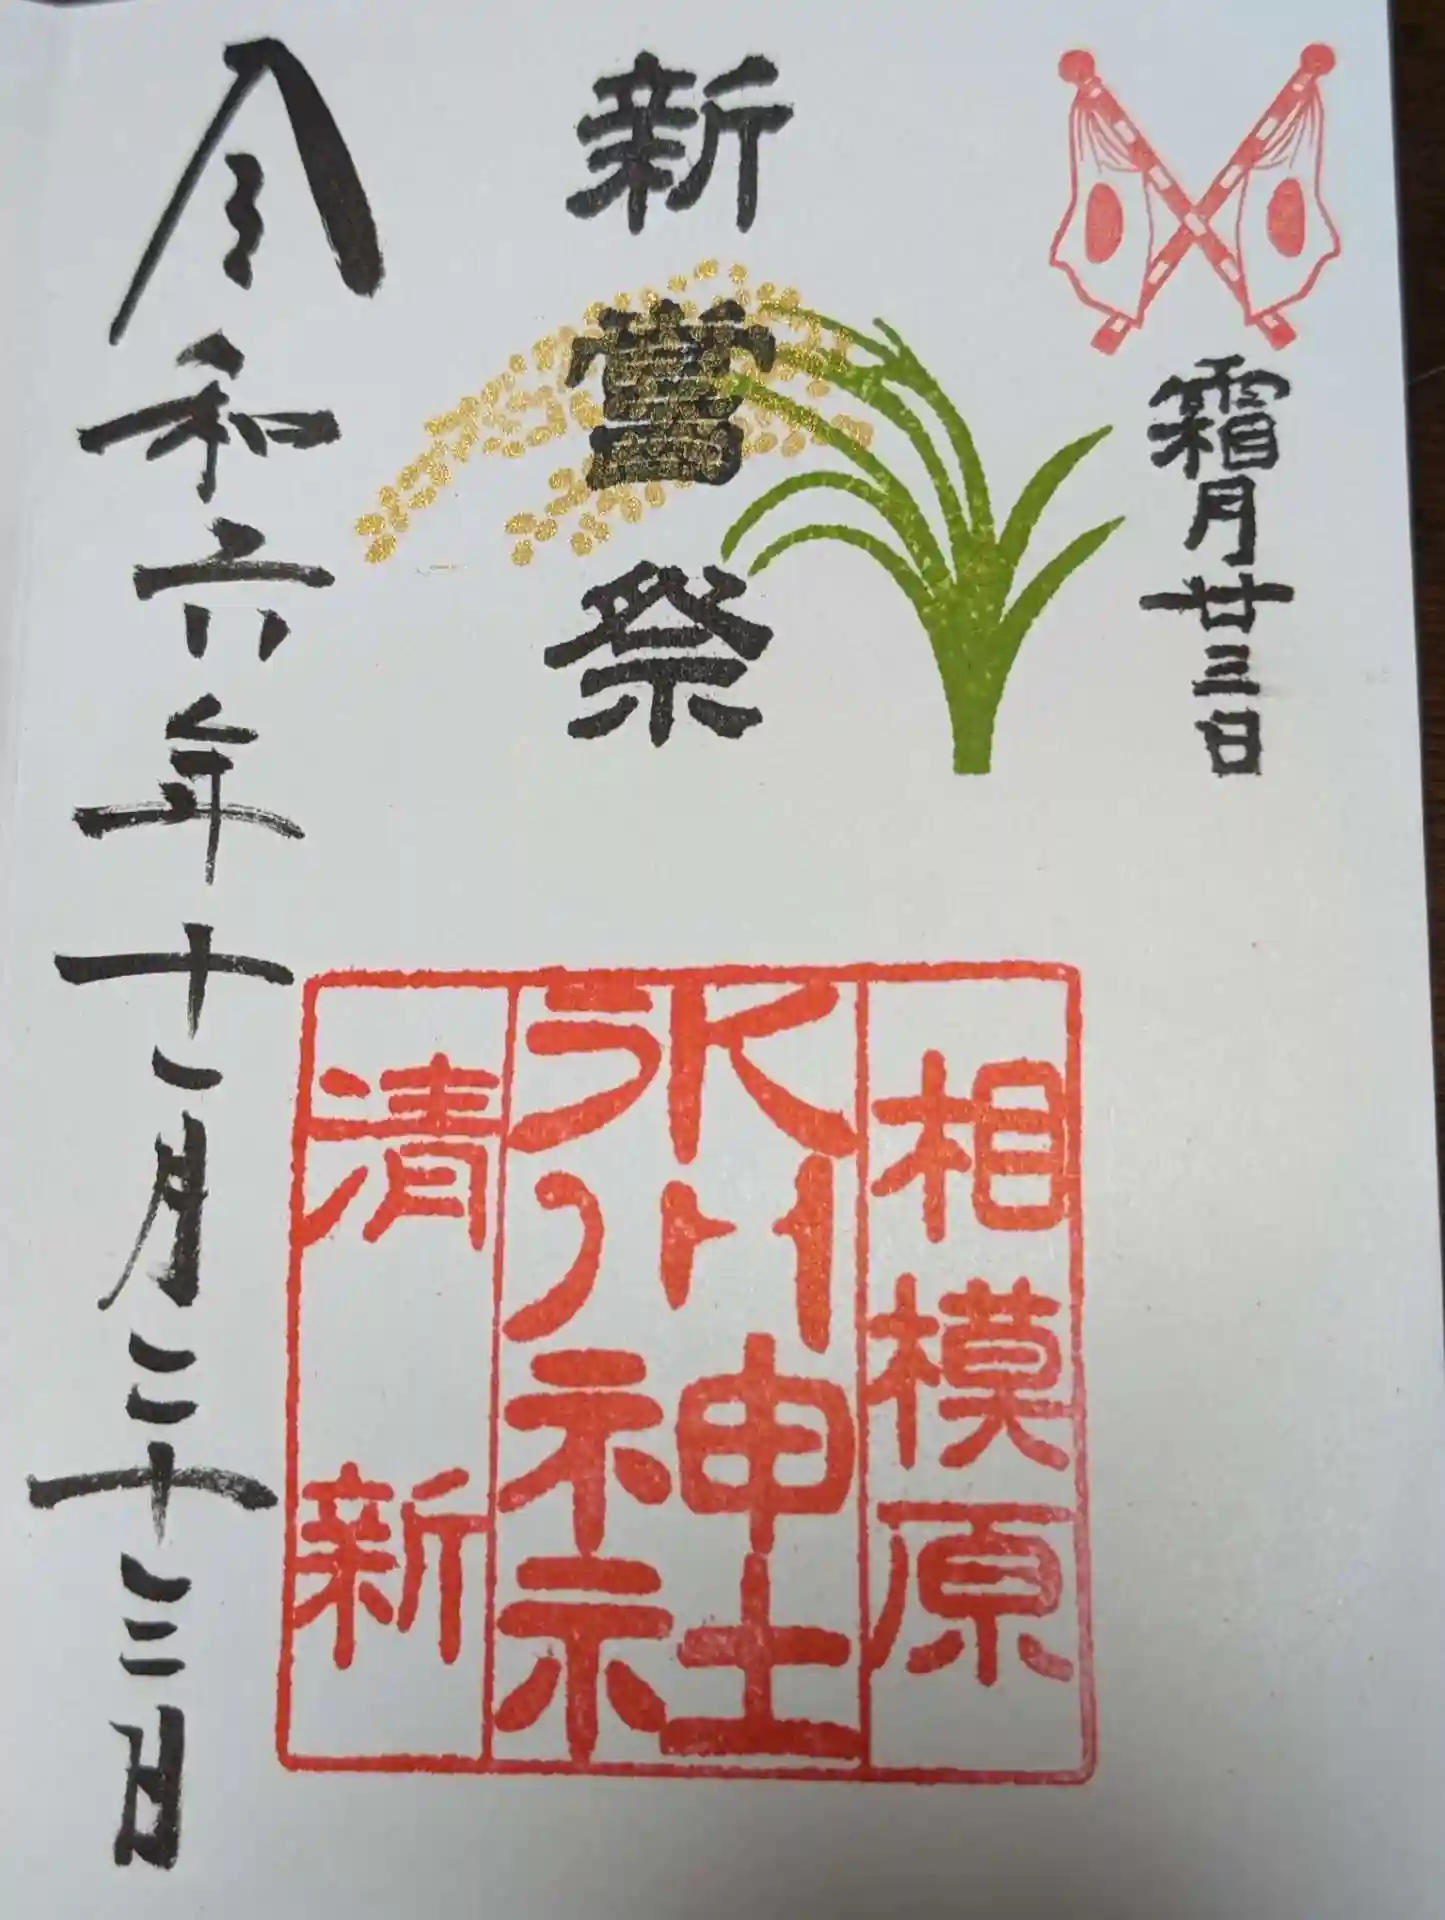 霜月廿三日
新嘗祭
相模原
氷川神社
清新
令和六年十一月二十三日